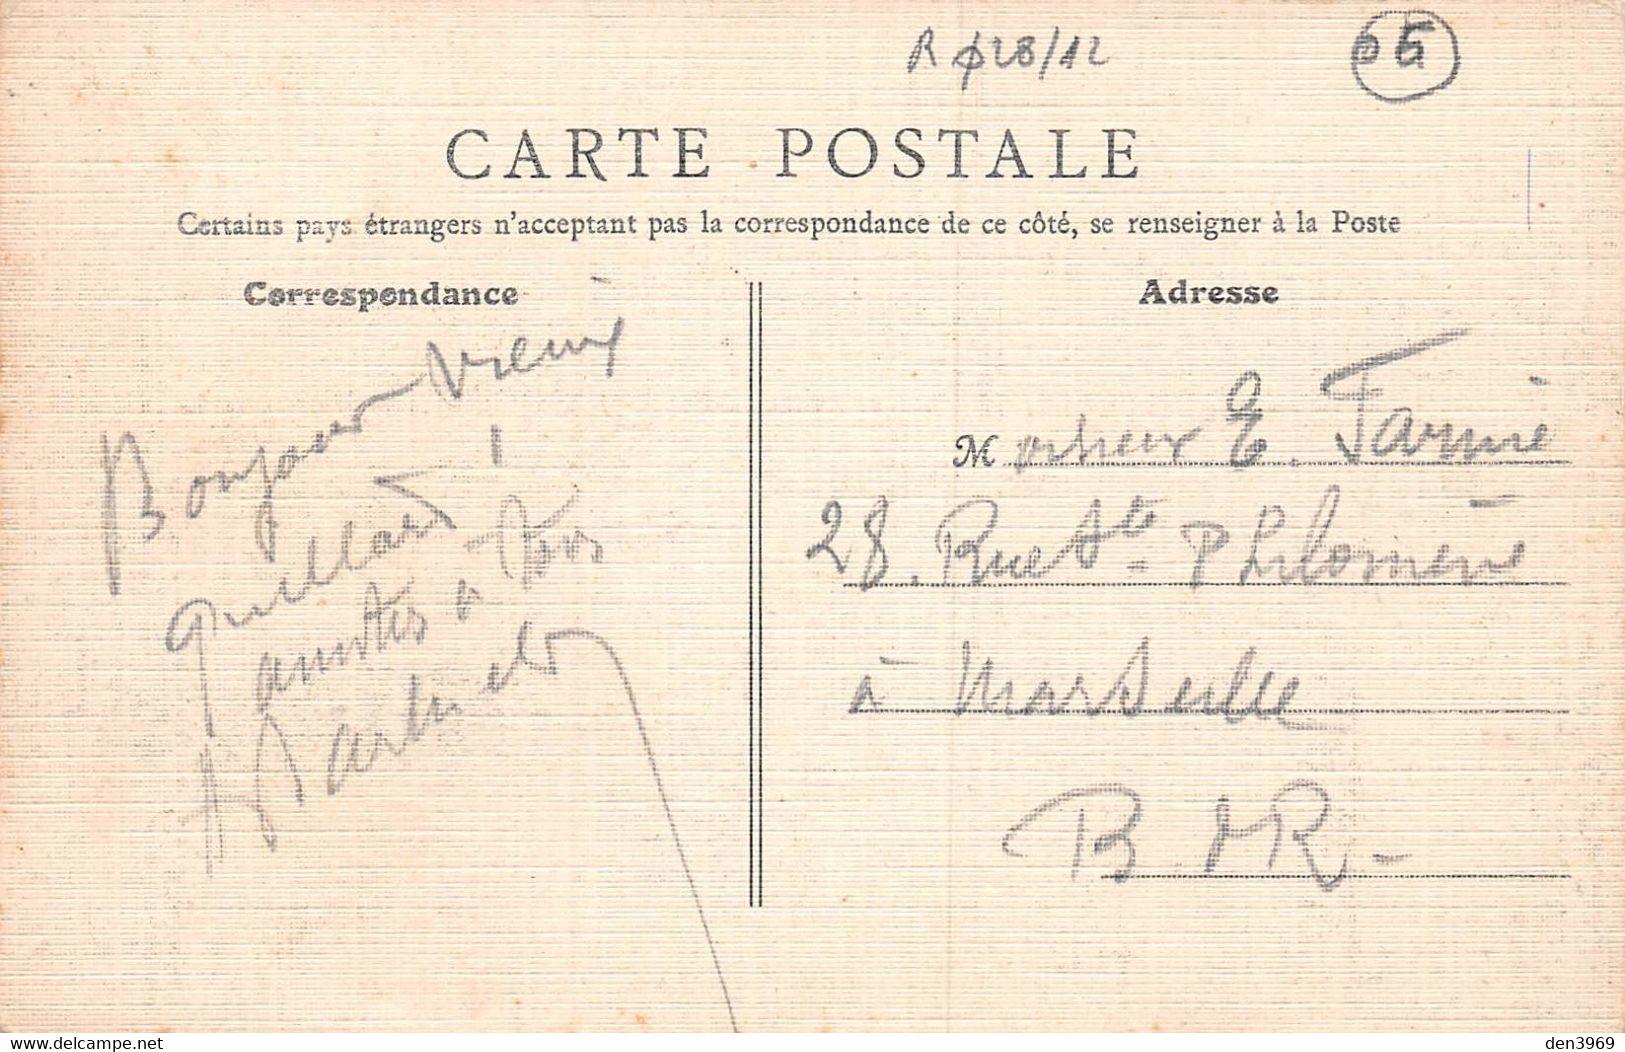 R φ28/12
06
CARTE POSTALE
Certains pays étrangers n'acceptant pas la correspondance de ce côté, se renseigner à la Poste
Correspondance
Bonjour vieux
amitiés à tous
Adresse
Monsieur E.
28. Rue Ste Philomène
à Marseille
B d R -
www.delcampe.net
den3969